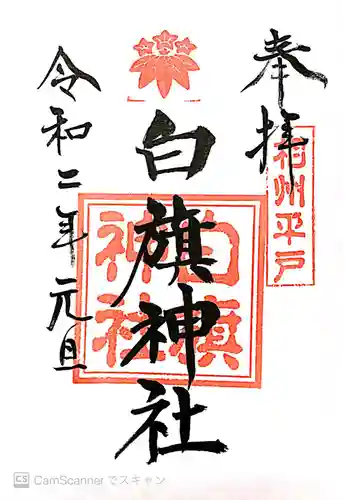 奉拝
相州平戸
白旗神社
白旗
神社
令和二年元旦
CS CamScanner でスキャン